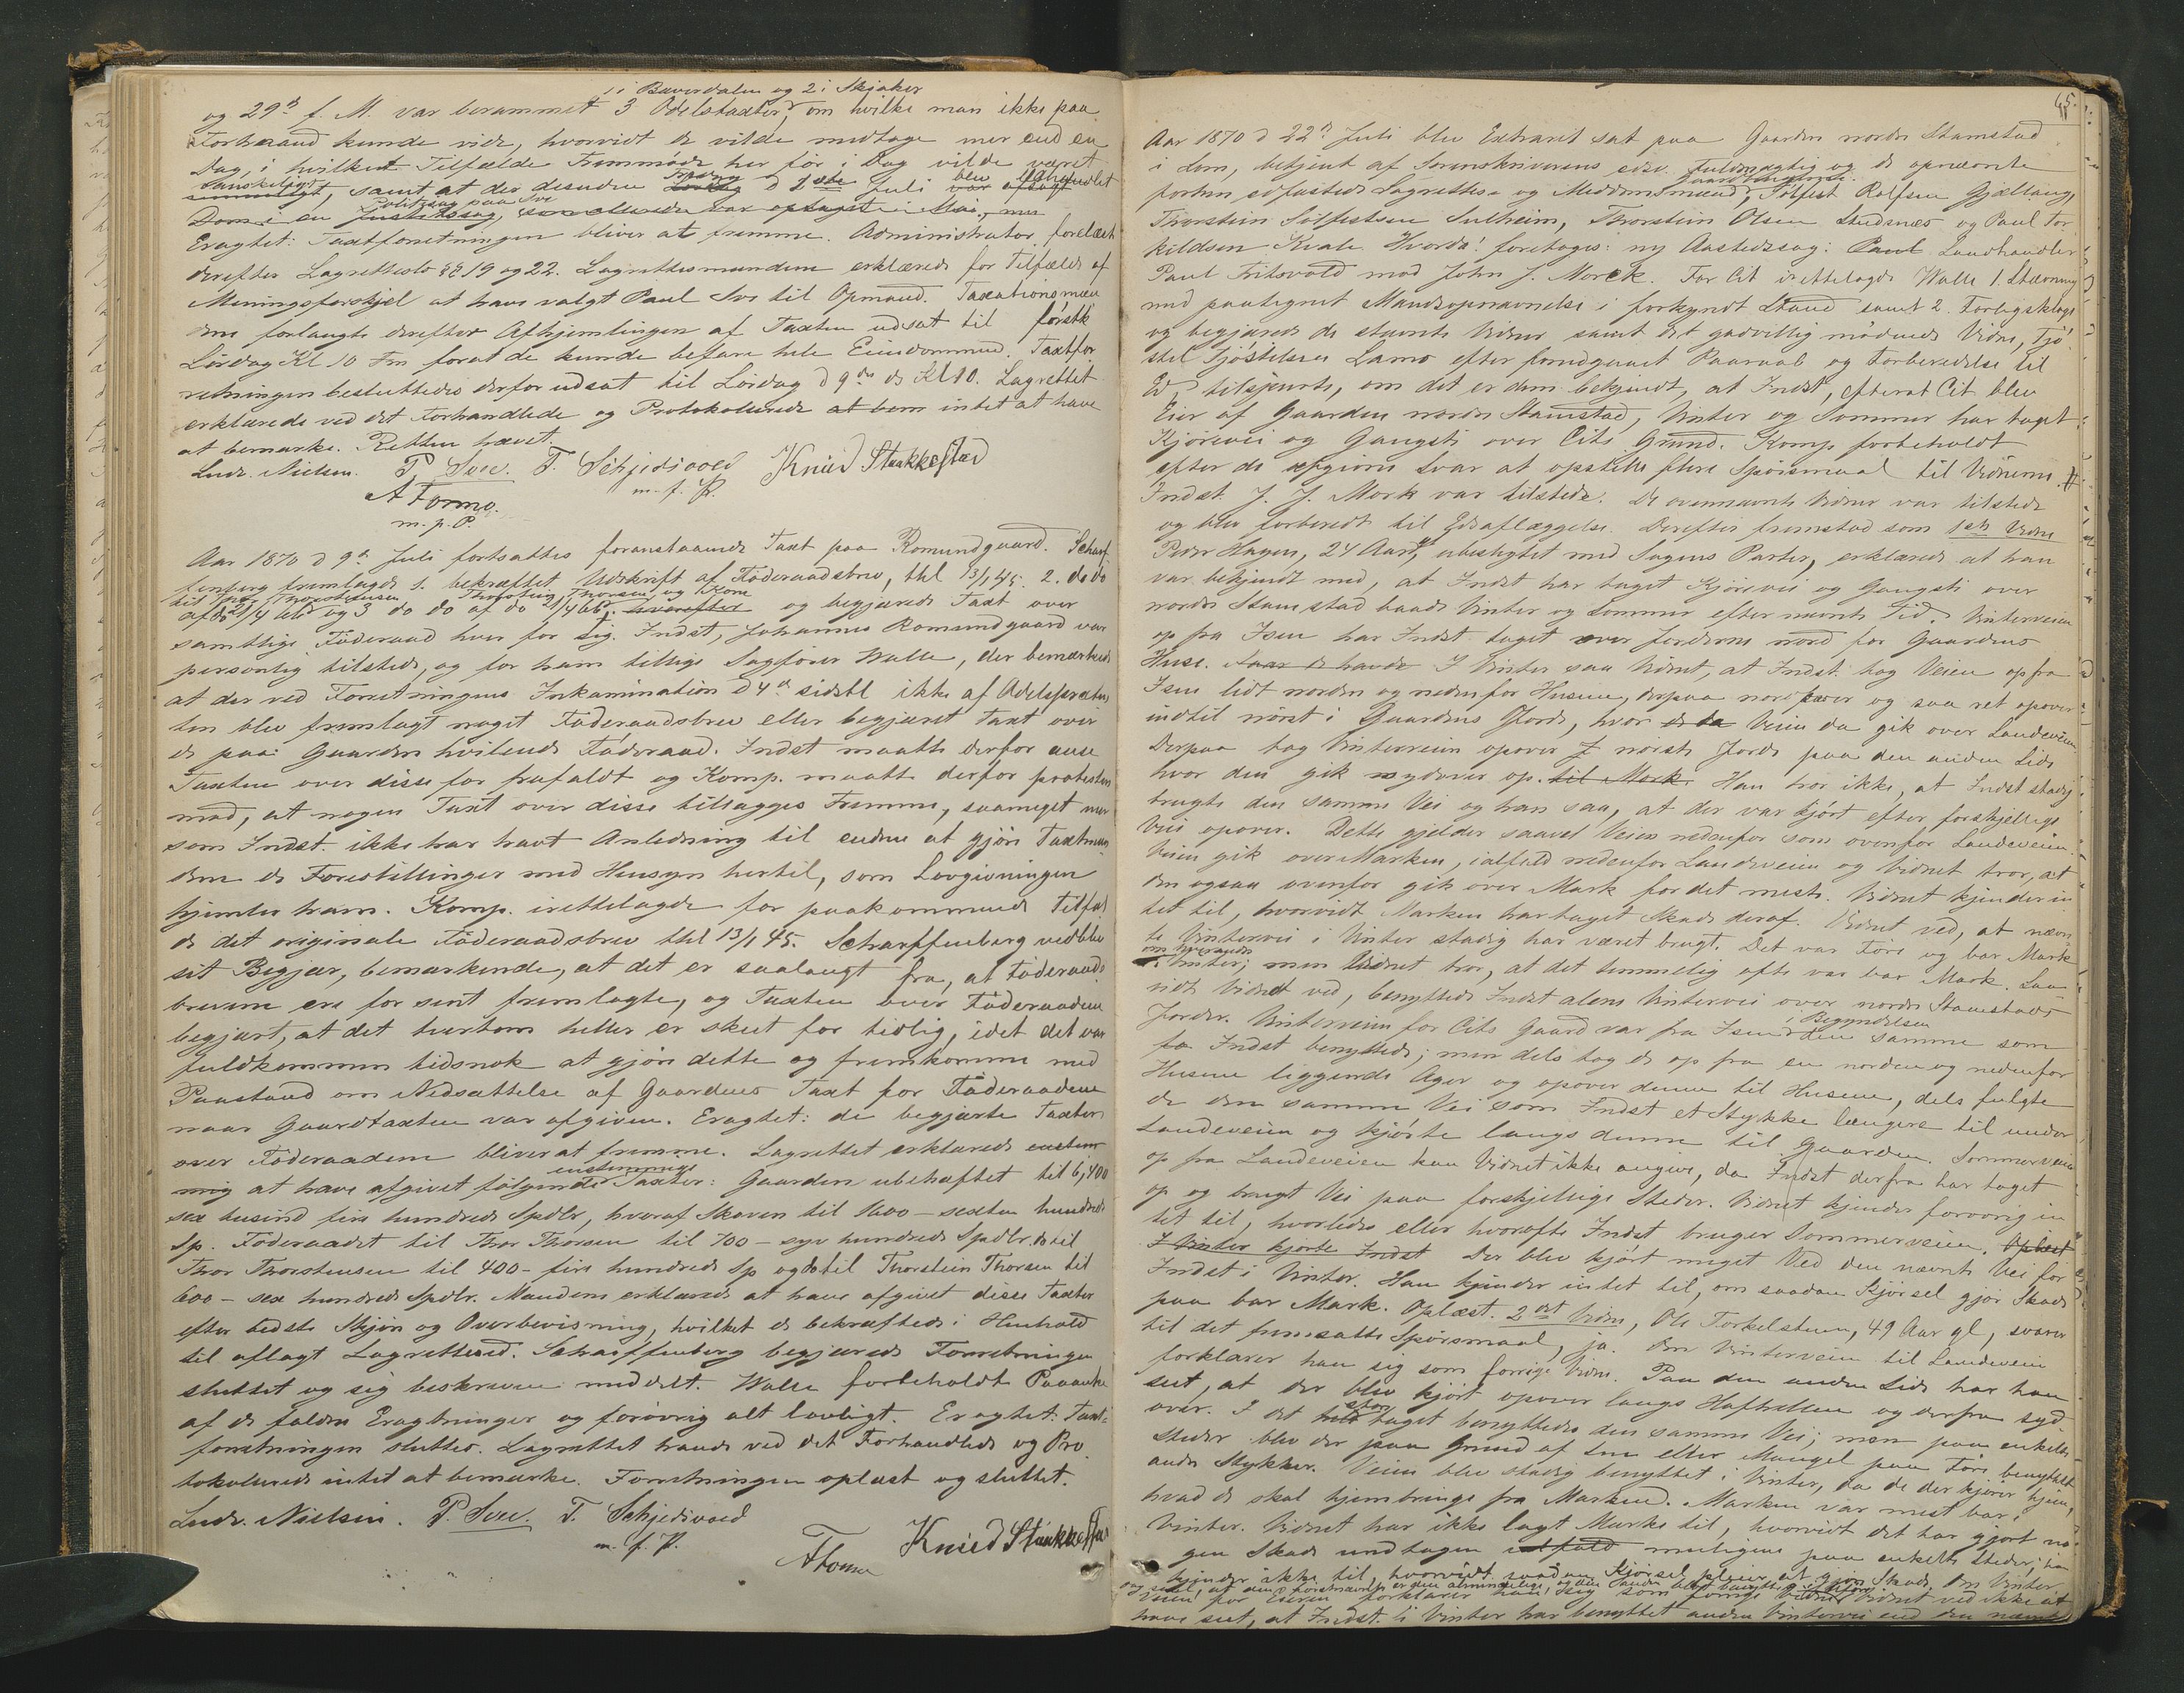 i Bæverdalen og 2 i Skjaker
og 29d f. M. var berammet 3 Odelstaxter, om hvilke man ikke paa
Forhaand kunde vide, hvorvidt de vilde medtage mer end en
Dag, i hvilket Tilfælde Fremmøde her før i Dag vilde været
vanskeligt, samt at der desuden Fredag d 1ste Juli blev behandlet
Politisag paa Sve
Eragtet: Taxtforretningen bliver at fremme. Administrator forelæst
derefter Lagretteslov §§ 19 og 22. Lagrettesmændene erklærede for Tilfælde af
Meningsforskjel at have valgt Paul Sve til Opmand. Taxationsmæn
dene forlangte derefter Afhjemlingen af Taxten udsat til førstk
Lørdag Kl 10 Fm forat de kunde befare hele Eiendommen. Taxtfor
retningen besluttedes derfor udsat til Lørdag d 9de ds Kl 10. Lagrettet
erklærede ved det Forhandlede og Protokollerede at bem intet at have
at bemærke. Retten hævet.
Ludv. Nielsen. P Sve. T. Schjedsvold Knud Stakkestad
m. f. P.
A Formo.
m. p. P.
Aar 1870 d 9de Juli fortsattes foranstaaende Taxt paa Romundgaard. Scharf
fenberg fremlagde 1. bekræftet Udskrift af Føderaadsbrev, thl 13/1 45. 2. do do
til Thor Thorstensen Thorstein Thorsen og Kone
og 3 do do af do 21/4 66, og begjærede Taxt over
samtlige Føderaad hver for sig. Indst, Johannes Romundgaard var
personlig tilstede, og for ham tillige Sagfører Walle, der bemærkede
at der ved Forretningens Inkamination d 4de sidstl ikke af Odelsprætenden
ten blev fremlagt noget Føderaadsbrev eller begjæret Taxt over
de paa Gaarden hvilende Føderaad. Indst maatte derfor anse
Taxten over disse for frafaldt og Komp. maatte derfor protestere
mod, at nogen Taxt over disse tillægges Fremme, saameget mer
som Indst. ikke har havt Anledning til endnu at gjøre Taxtmæn
dene de Forestillinger med Hensyn hertil, som Lovgivningen
hjemler ham. Komp. irettelagde for paakommende Tilfæl
de det originale Føderaadsbrev thl 13/1 45. Scharffenberg vedblev
sit Begjær, bemærkende, at det er saalangt fra, at Føderaads
brevene ere for sent fremlagte, og Taxten over Føderaadene
begjært, at det tvertom heller er skeet for tidlig, idet det var
fuldkommen tidsnok at gjøre dette og fremkomme med
Paastand om Nedsættelse af Gaardens Taxt for Føderaadene
naar Gaardtaxten var afgiven. Eragtet: de begjærte Taxter
over Føderaadene bliver at fremme. Lagrettet erklærede enstem
mig at have afgivet følgende enstemmige Taxter: Gaarden ubehæftet til 6,400
sex tusind fire hundrede Spdlr, hvoraf Skoven til 1600 – sexten hundrede
Sp. Føderaadet til Thor Thorsen til 700 – syv hundrede Spdlr. do til
Thor Thorstensen til 400 – fire hundrede Sp og do til Thorstein Thorsen til
600 – sex hundrede Spdlr. Mændene erklærede at have afgivet disse Taxter
efter bedste Skjøn og Overbevisning, hvilket de bekræftede i Henhold
til aflagt Lagrettesed. Scharffenberg begjærede Forretningen
sluttet og sig beskreven meddelt. Walle forbeholdt Paaanke
af de faldne Eragtninger og forøvrig alt lovligt. Eragtet: Taxt
forretningen sluttes. Lagrettet havde ved det Forhandlede og Pro
tokollerede intet at bemærke. Forretningen oplæst og sluttet.
Ludv. Nielsen. P. Sve. T. Schjedsvold
m. f. P. A Formo Knud Stakkestad
45.
Aar 1870 d 22d Juli blev Extraret sat paa Gaarden nordre Stamstad
i Lom, betjent af Sorenskriverens edsv. Fuldmægtig og de opnævnte
forhen edfæstede Lagrettes- og Meddomsmænd, Tolfest Rolfsen Gjeltaug,
Thorstein Tolfestsen Sulheim, Thorstein Olsen Studsnæs og Paul Tor
kildsen Kvale. Hvorda! foretoges: ny Aastedssag: Landhandler
Paul Fritsvold mod John J. Morck. For Cit irettelagde Walle 1. Stævning
med paategnet Mandsopnævnelse i forkyndt Stand samt 2. Forligsklage
og begjærede de stævnte Vidner samt det godvillig mødende Vidne, Tjø
stel Tjøstelsen Lamo efter forudgaaet Paaraab og Forberedelse til
Ed tilspurte, om det er dem bekjendt, at Indst, efterat Cit blev
Eier af Gaarden nordre Stamstad, Vinter og Sommer har taget
Kjørevei og Gangsti over Cits Grund. Komp forbeholdt
efter de afgivne Svar at opstille flere Spørsmaal til Vidnerne. #
Indst. J. J. Mork var tilstede. De ovennævnte Vidner var tilstede
og blev forberedt til Edsaflæggelse. Derefter fremstod som 1ste Vidne
Peder Hagen, 24 Aar, ubeslægtet med Sagens Parter, erklærede at han
var bekjendt med, at Indst har taget Kjørevei og Gangsti over
nordre Stamstad baade Vinter og Sommer efter nævnte Tid. Vinterveien
op fra Isen har Indst. taget over Jorderne nord for Gaardens
Huse. I Vinter saa Vidnet, at Indst. tog Veien op fra
Isen lidt norden og nedenfor Husene, derpaa nordover og saa ret opover
indtil nørst i Gaardens Jorde, hvor Veien da gik over Landeveien.
Derpaa tog Vinterveien opover nørste Jorde paa den anden Side
hvor den gik sydover op. Han tror ikke, at Indst stadig
brugte den samme Vei og han saa, at der var kjørt efter forskjellige
Veie opover. Dette gjelder saavel Veien nedenfor som ovenfor Landeveien.
Veien gik over Marken, ialfald nedenfor Landeveien og Vidnet tror, at
den ogsaa ovenfor gik over Mark for det meste. Vidnet kjender in
tet til, hvorvidt Marken har taget Skade deraf. Vidnet ved, at nævn
te Vintervei i Vinter stadig har været brugt. Det var Føre og bar Mark
om hverandre
i Vinter; men Vidnet tror, at det temmelig ofte var bar Mark. Saa
vidt Vidnet ved, benyttede Indst alene Vintervei over nordre Stamstads
Jorder. Vinterveien for Cits Gaard var fra Isen i Begyndelsen den samme som
fa Indst benyttede; men dels tog de op fra en norden og nedenfor
Husene liggende Ager og opover denne til Husene, dels fulgte
de den samme Vei som Indst et Stykke længere til under
Landeveien og kjørte langs denne til Gaarden. Sommerveien
op fra Landeveien kan Vidnet ikke angive, da Indst derfra har taget
op og brugt Vei paa forskjellige Steder. Vidnet kjender forøvrig in
tet til, hvorledes eller hvorofte Indst bruger Sommerveien. Oplæst
I Vinter kjørte Indst Der blev kjørt meget Ved den nævnte Vei for
Indst i Vinter. Han kjender intet til, om saadan Kjørsel gjør Skade
paa bar Mark. Oplæst. 2det Vidne, Ole Torkelsteen, 49 Aar gl, svarer
til det fremsatte Spørsmaal, ja. Om Vinterveien til Landeveien
forklarer han sig som forrige Vidne. Paa den anden Side har han
seet, at der blev kjørt opover langs Haftrællen og derfra syd
over. I det store taget benyttedes den samme Vei; men paa enkelte
Steder blev der paa Grund af Sne eller Mangel paa Føre benyttet
andre Stykker. Veien blev stadig benyttet i Vinter, da de der kjører hjem,
hvad de skal hjembringe fra Marken. Marken var mest bar i
Vinter. Vidnet har ikke lagt Mærke til, hvorvidt det har gjort no
gen Skade undtagen muligens paa enkelte Steder; han
kjender ikke til, hvorvidt saadan Kjørsel pleier at gjøre Skade. Om Vinter
veien for Eieren forklarer han sig som forrige Vidne Vidnet ved ikke at
have seet, at Indst. i Vinter har benyttet anden Vintervei end den nævnte